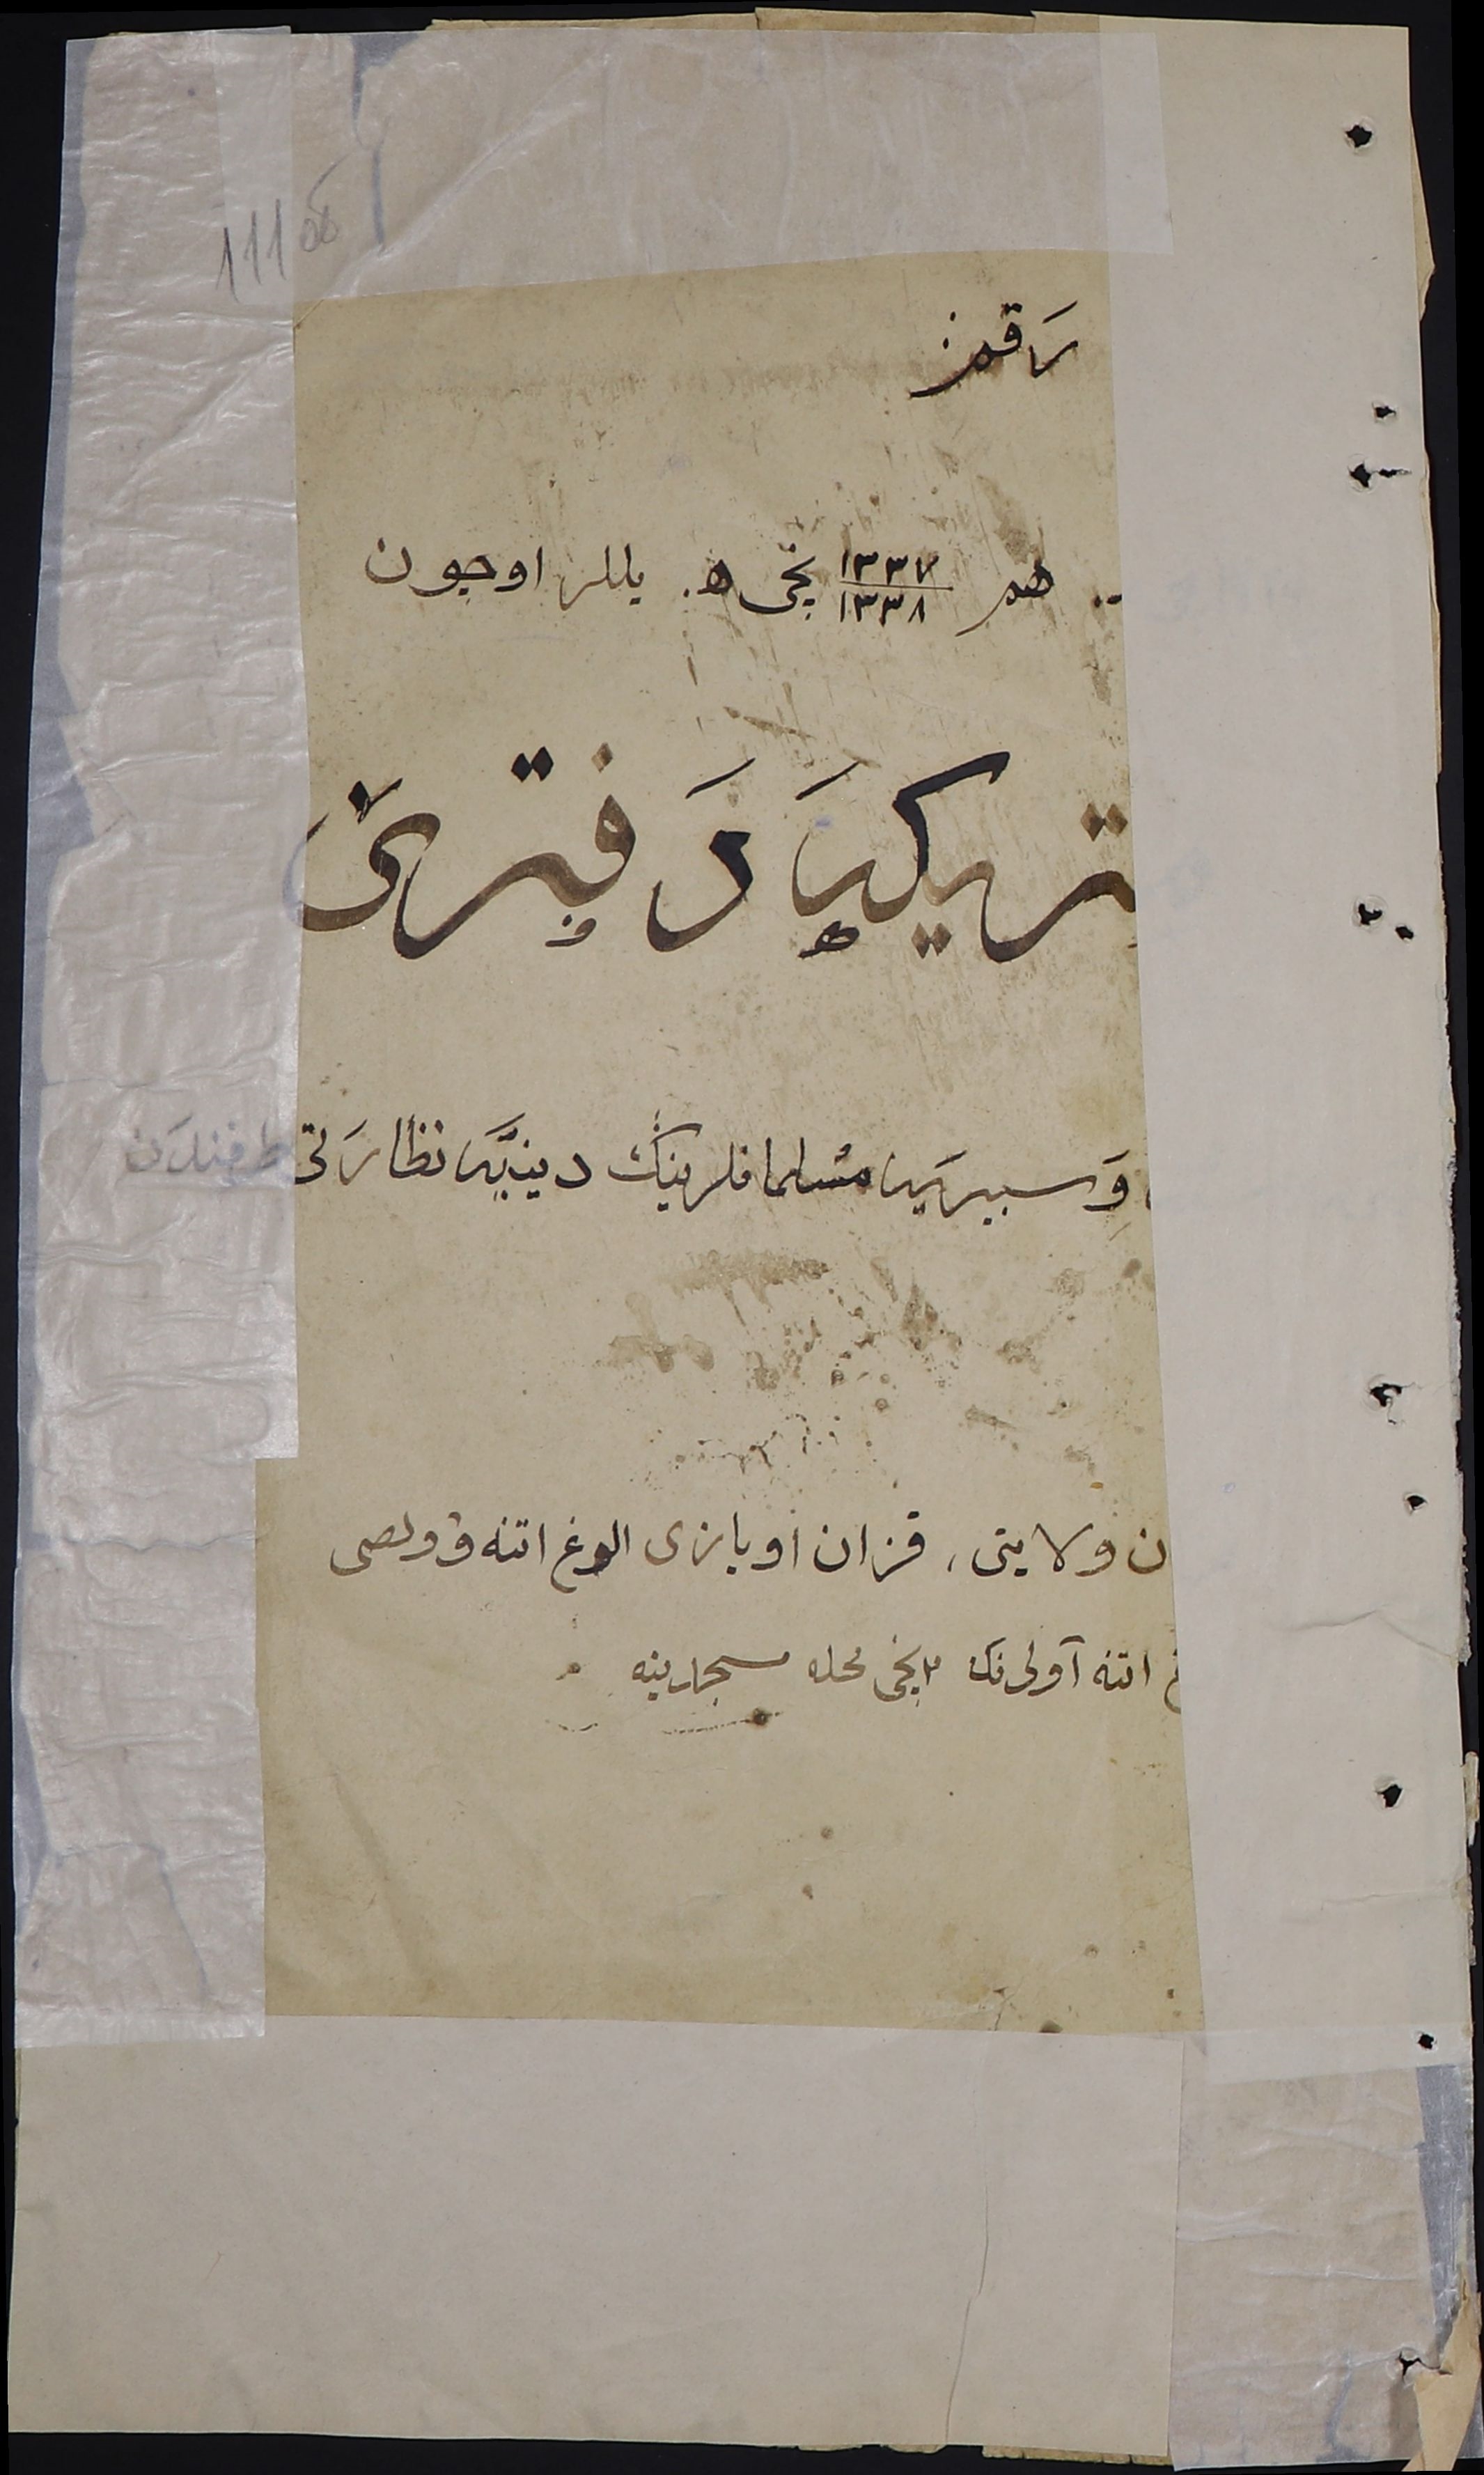 111 об
رَقمز
هم ١٣٣٧ / ١٣٣٨ نچی ه. یللر اوچون
متریکه دَفتری
وَ سبیریَه مسلمانلرینڭ دینیَّه نظارَتی طرفندن
ن ولایتی، قزان اویازی الوغ اتنه وولصی
اتنه آولی نڭ ٢ نچی محله مسجدینه